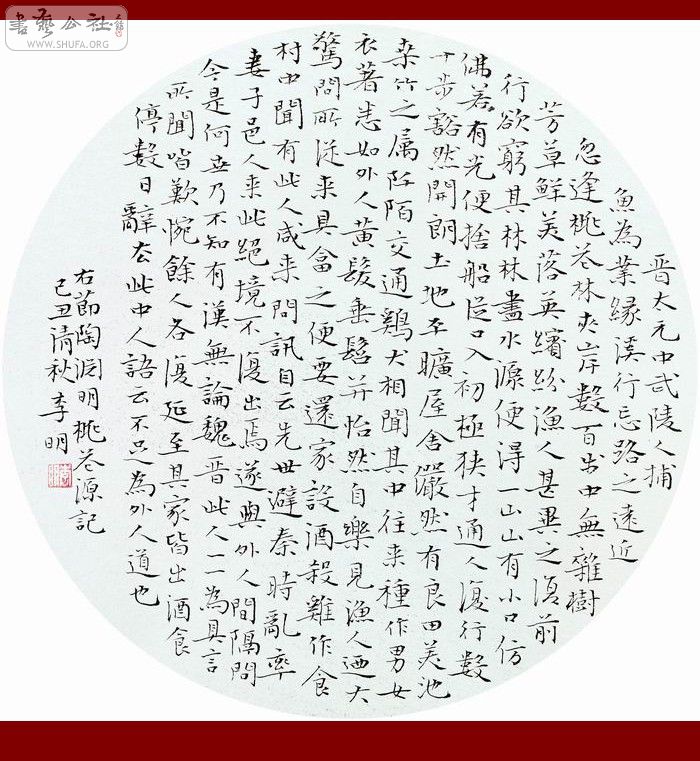 書藝公社
WWW.SHUFA.ORG
晉太元中武陵人捕
魚為業緣溪行忘路之遠近
忽逢桃花林夾岸數百步中無雜樹
芳草鮮美落英繽紛漁人甚異之復前
行欲窮其林林盡水源便得一山山有小口仿
佛若有光便捨船從口入初極狹才通人復行數
十步豁然開朗土地平曠屋舍儼然有良田美池
桑竹之屬阡陌交通鷄犬相聞其中往来種作男女
衣著悉如外人黃髮垂髫并怡然自樂見漁人迺大
驚問所從来具畣之便要還家設酒殺雞作食
村中聞有此人咸来問訊自云先世避秦時亂率
妻子邑人来此絕境不復出焉遂與外人間隔問
今是何世乃不知有漢無論魏晉此人一一為具言
所聞皆歎惋餘人各復延至其家皆出酒食
停數日辭去此中人語云不足為外人道也
右節陶淵明桃花源記
己丑清秋李明